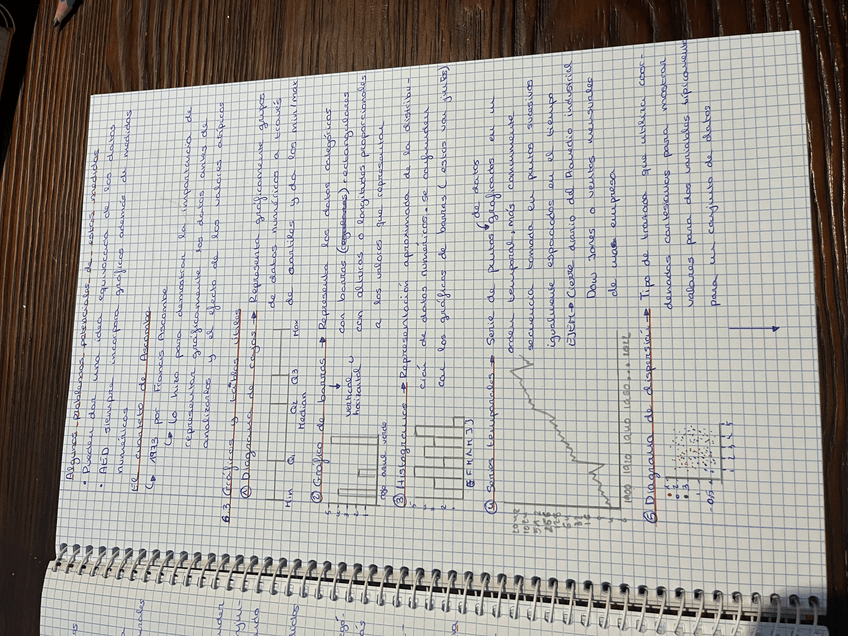 Algunos problemas potenciales de estas medidas
• Pueden dar una idea equivocada de los datos
• AED siempre incorpora gráficos además de medidas
numéricas
El cuarteto de Ascombe
↳ 1973 por Francis Ascombe
↳ lo hizo para demostrar la importancia de
representar gráficamente los datos antes de
analizarlos y el efecto de los valores atípicos
6.3 Gráficas y tablas útiles
① Diagrama de cajas → Representa gráficamente grupos
de datos numéricos a través
de cuartiles y da los min/max
Min Q1 Q2 Q3 Max
Median
② Gráfico de barras → Representa los datos categóricos
con barras rectangulares
vertical u
horizontal
con alturas o longitudes proporcionales
a los valores que representan
5
4
3
2
1
rojo azul verde
③ Histograma → Representación aproximada de la distribu-
ción de datos numéricos. Se confunden
con los gráficos de barras (estos van juntos)
5
2
1
E F M A M J J
④ Series temporales → Serie de puntos de datos graficados en un
orden temporal, más comunmente
secuencia tomada en puntos sucesivos
igualmente espaciados en el tiempo
EJEM → Cierre diario del Promedio industrial
Dow Jones o ventas mensuales
de una empresa
2048
1024
512
256
128
64
32
16
8
1900 1920 1940 1960 ... 2022
⑤ Diagrama de dispersión → Tipo de trazado que utiliza coor-
denadas cartesianas para mostrar
valores para dos variables típicamente
para un conjunto de datos
1
2
3
-0,5
1 2 3 4 5